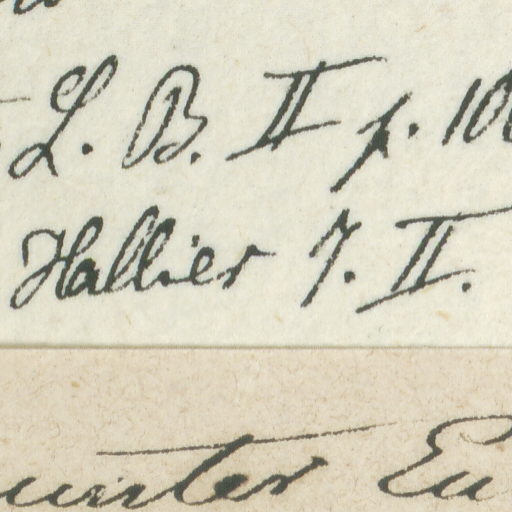 L. B. II p. 10
Hallier J. II.
unter Eu